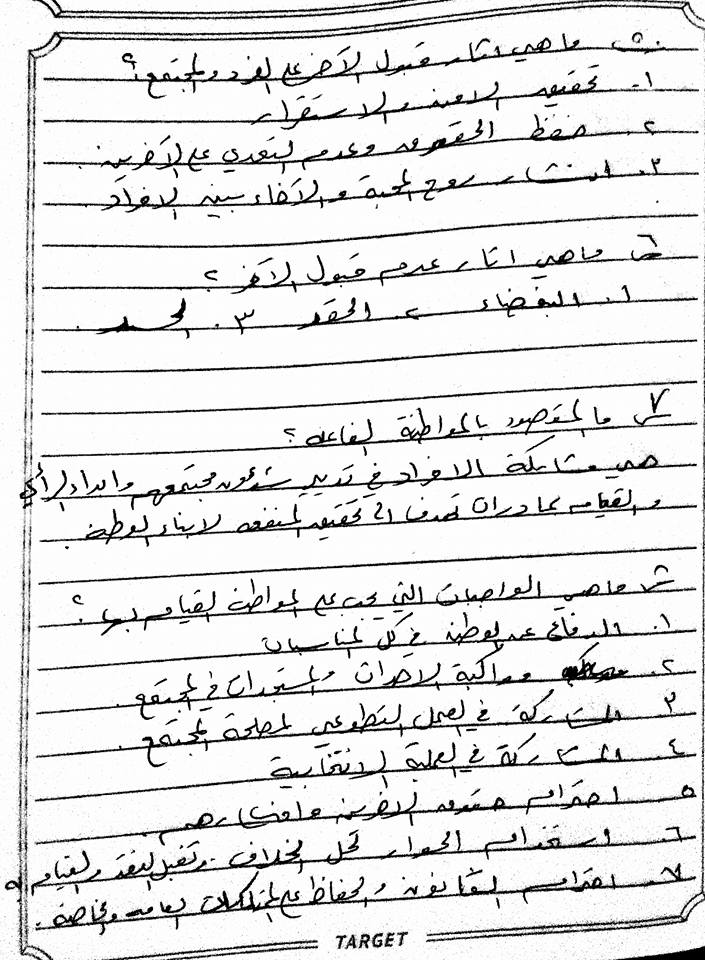 س٥ ما هي اثار قبول الآخر على الفرد والمجتمع؟
١. تحقيق الامن والاستقرار
٢. حفظ الحقوق وعدم التعدي على الآخرين.
٣. انتشار روح المحبة والاخاء بين الافراد.
س٦ ما هي اثار عدم قبول الآخر؟
١. البغضاء ٢. الحقد ٣. الحسد.
س٧ ما المقصود بالمواطنة الفاعله؟
هي مشاركة الافراد في تدبير شؤون مجتمعهم وابداء الرأي
والقيام بمبادرات تهدف الى تحقيق المنفعه لابناء الوطن.
س٨ ما هي الواجبات التي يجب على المواطن القيام بها؟
١. الدفاع عن الوطن في كل المناسبات
٢. مواكبة الاحداث والمستجدات في المجتمع.
٣. المشاركة في العمل التطوعي لمصلحة المجتمع.
٤. المشاركة في العملية الانتخابية
٥. احترام حقوق الاخرين وافكارهم.
٦. استخدام الحوار لحل الخلاف وتقبل النقد والقيام به
٧. احترام القانون والحفاظ على الممتلكات العامه والخاصة.
TARGET